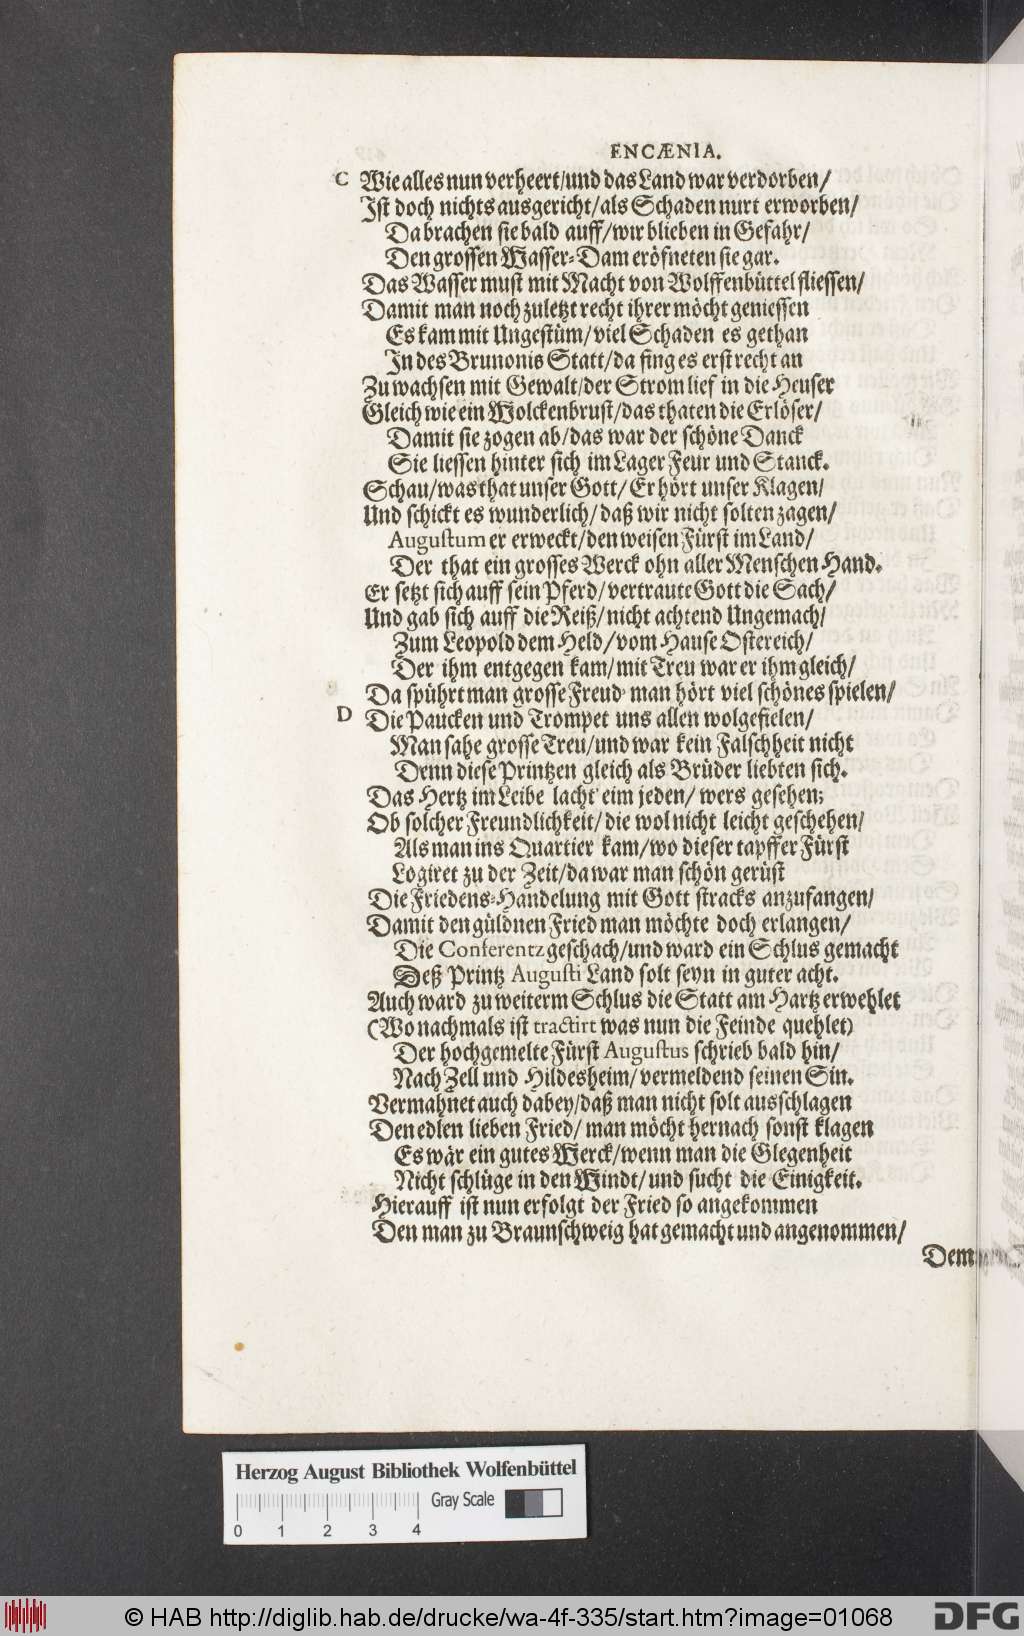 ENCÆNIA.
C Wie alles nun verheert/und das Land war verdorben/
Ist doch nichts ausgericht/als Schaden nurt erworben/
Da brachen sie bald auff/wir blieben in Gefahr/
Den grossen Wasser-Dam eröfneten sie gar.
Das Wasser must mit Macht von Wolffenbüttel fliessen/
Damit man noch zuletzt recht ihrer möcht geniessen
Es kam mit Ungestüm/viel Schaden es gethan
In des Brunonis Statt/da fing es erst recht an
Zu wachsen mit Gewalt/der Strom lief in die Heuser
Gleich wie ein Wolckenbrust/das thaten die Erlöser/
Damit sie zogen ab/das war der schöne Danck
Sie liessen hinter sich im Lager Feur und Stanck.
Schau/was that unser Gott/Er hört unser Klagen/
Und schickt es wunderlich/daß wir nicht solten zagen/
Augustum er erweckt/den weisen Fürst im Land/
Der that ein grosses Werck ohn aller Menschen Hand.
Er setzt sich auff sein Pferd/vertraute Gott die Sach/
Und gab sich auff die Reiß/nicht achtend Ungemach/
Zum Leopold dem Held/vom Hause Ostereich/
Der ihm entgegen kam/mit Treu war er ihm gleich/
Da spührt man grosse Freud man hört viel schönes spielen/
D Die Paucken und Trompet uns allen wolgefielen/
Man sahe grosse Treu/und war kein Falschheit nicht
Denn diese Printzen gleich als Brüder liebten sich.
Das Hertz im Leibe lacht' eim jeden/wers gesehen;
Ob solcher Freundlichkeit/die wol nicht leicht geschehen/
Als man ins Quartier kam/wo dieser tapffer Fürst
Logiret zu der Zeit/da war man schön gerüst
Die Friedens-Handelung mit Gott stracks anzufangen/
Damit den güldnen Fried man möchte doch erlangen/
Die Conferentz geschach/und ward ein Schlus gemacht
Deß Printz Augusti Land solt seyn in guter acht.
Auch ward zu weiterm Schlus die Statt am Hartz erwehlet
(Wo nachmals ist tractirt was nun die Feinde quehlet)
Der hochgemelte Fürst Augustus schrieb bald hin/
Nach Zell und Hildesheim/vermeldend seinen Sin.
Vermahnet auch dabey/daß man nicht solt ausschlagen
Den edlen lieben Fried/man möcht hernach sonst klagen
Es wär ein gutes Werck/wenn man die Glegenheit
Nicht schlüge in den Windt/und sucht die Einigkeit.
Hierauff ist nun erfolgt der Fried so angekommen
Den man zu Braunschweig hat gemacht und angenommen/
Dem
Herzog August Bibliothek Wolfenbüttel
Gray Scale
0 1 2 3 4
© HAB http://diglib.hab.de/drucke/wa-4f-335/start.htm?image=01068
DFG